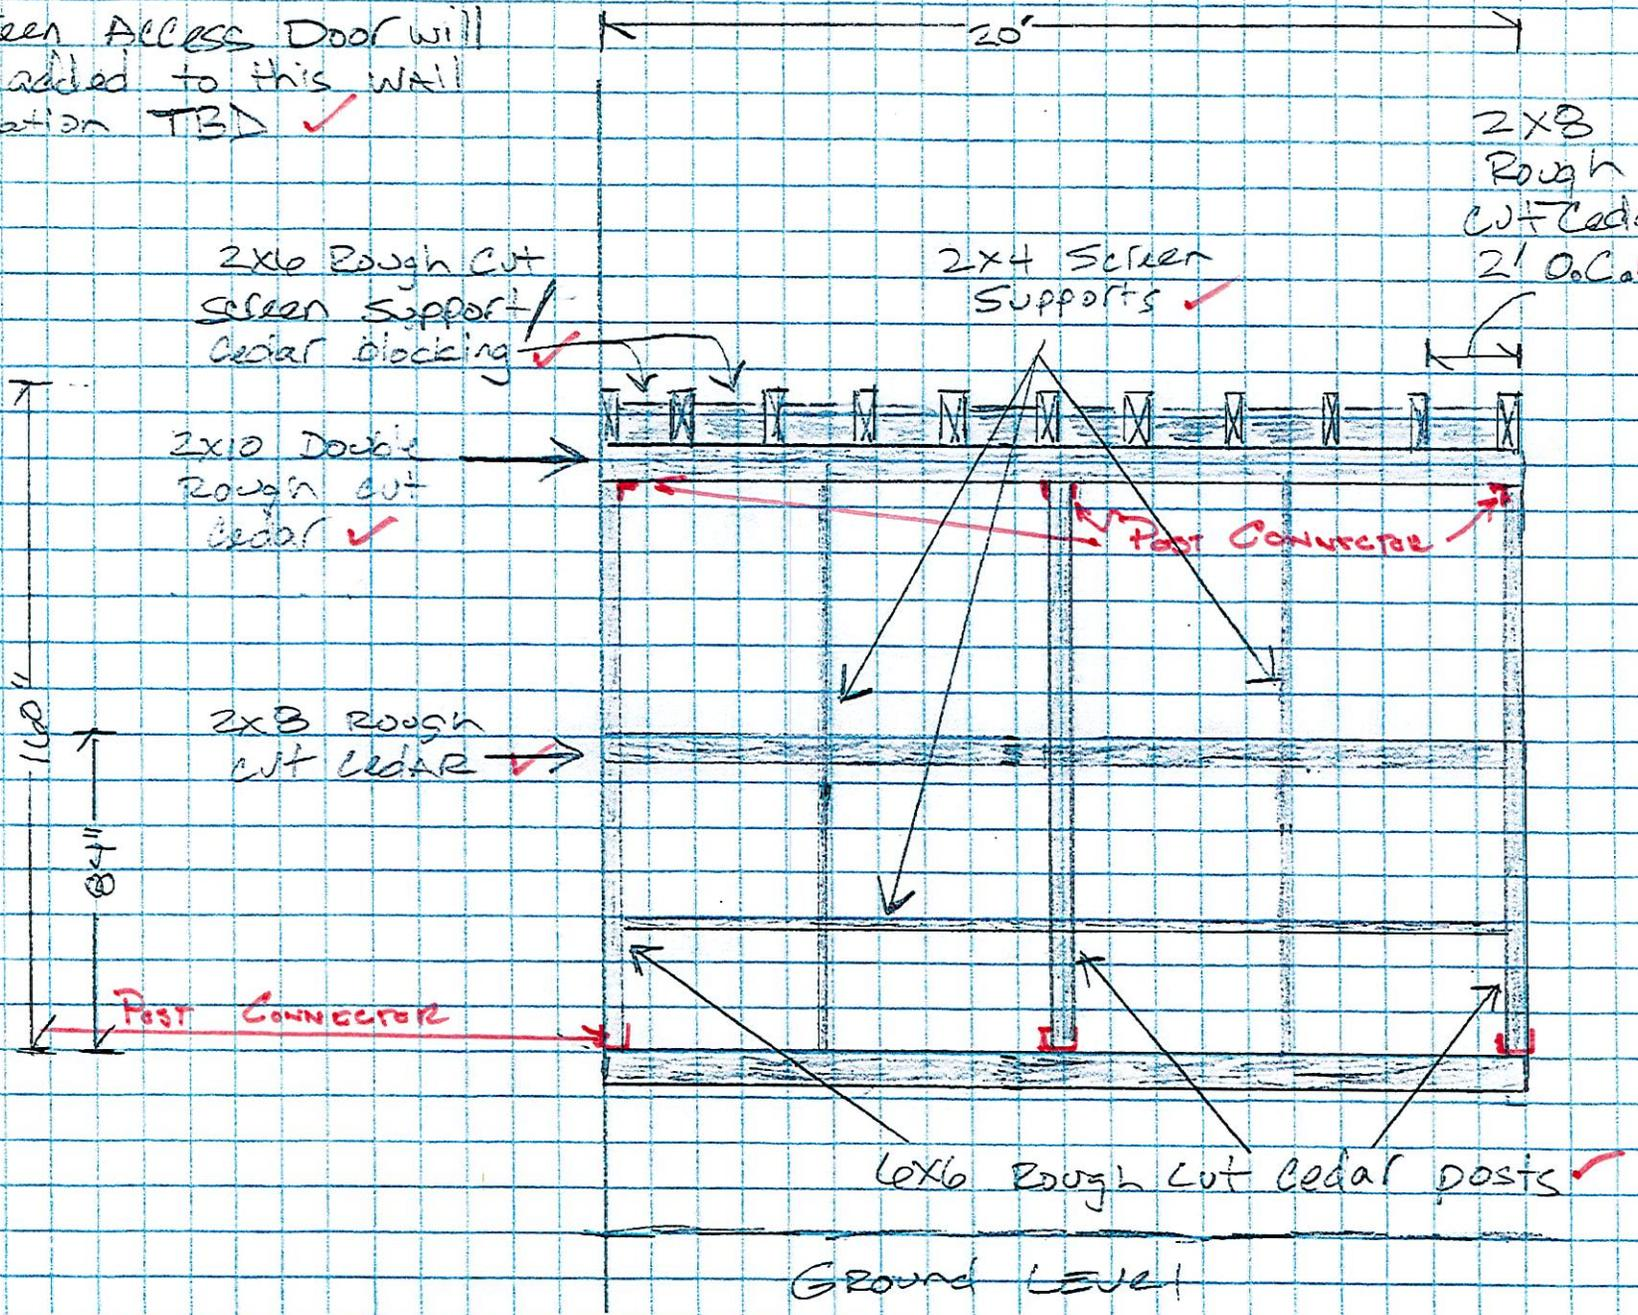 een Access Door will
added to this wall
ation TBD
20'
2x8
Rough
cut Ceda
2' O.C.
2x6 Rough Cut
screen support/
Cedar blocking
2x4 Screen
Supports
2x10 Double
Rough cut
Cedar
Post Connector
160"
2x8 Rough
cut Cedar
84"
Post Connector
6x6 Rough cut Cedar posts
Ground Level